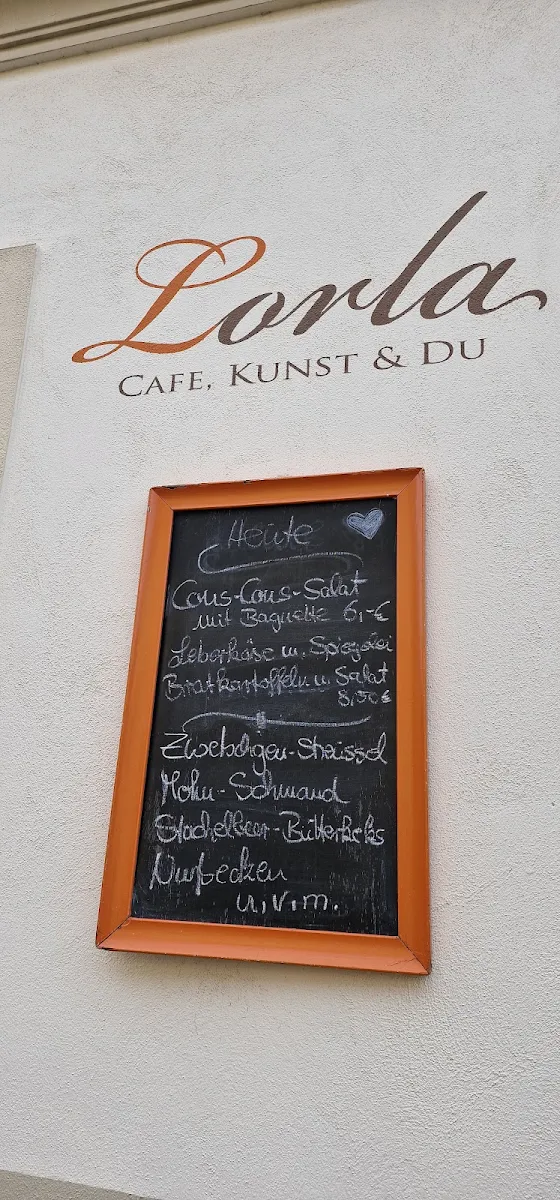 Lorla
CAFE, KUNST & DU
Heute
Cous-Cous-Salat
mit Baguette 6,-€
Leberkäse m. Spiegelei
Bratkartoffeln u. Salat
8,50€
Zwetschgen-Streussel
Mohn-Schmand
Stachelbeer-Butterkeks
Nußecken
u.v.m.